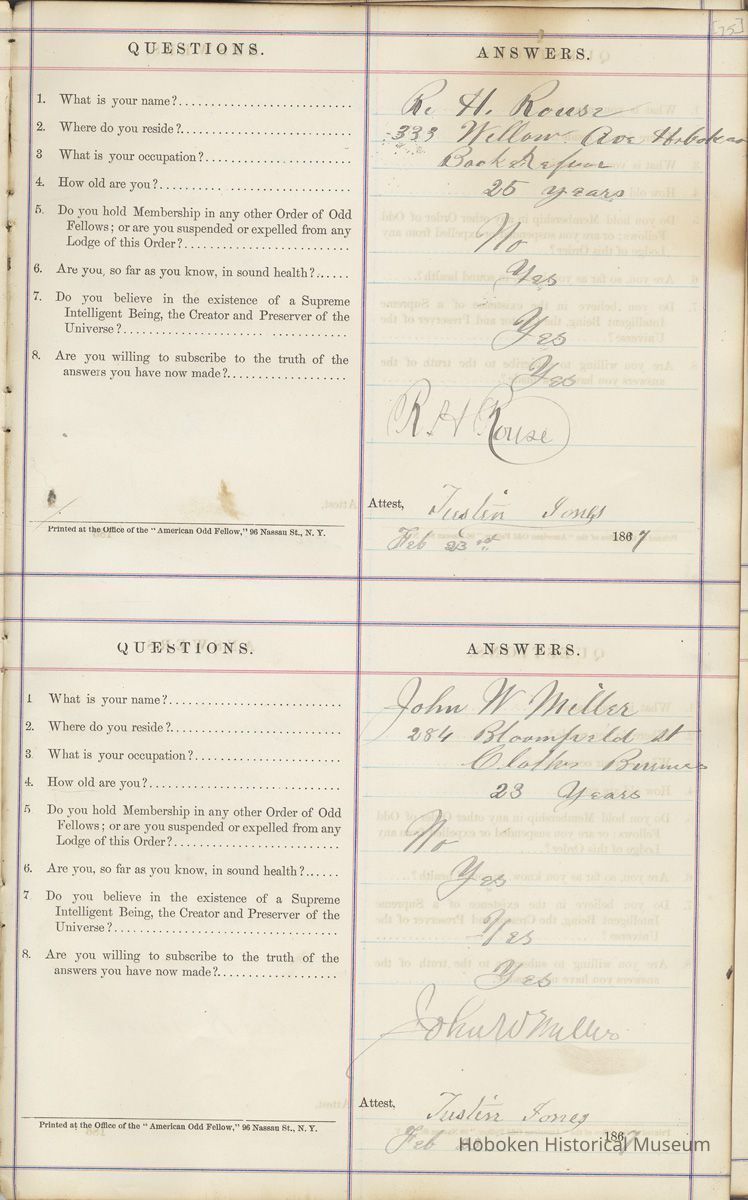 [75]
QUESTIONS. ANSWERS.
1. What is your name?........................... R. H. Rouse
2. Where do you reside?.......................... 333 Willow Ave Hoboken
3 What is your occupation?......................
4. How old are you?.............................. 25 years
5. Do you hold Membership in any other Order of Odd
Fellows; or are you suspended or expelled from any
Lodge of this Order?........................... No
6. Are you, so far as you know, in sound health?...... Yes
7. Do you believe in the existence of a Supreme
Intelligent Being, the Creator and Preserver of the
Universe?.................................... Yes
8. Are you willing to subscribe to the truth of the
answers you have now made?.................... Yes
R H Rouse
Attest, Justin Jones
Printed at the Office of the "American Odd Fellow," 96 Nassau St., N. Y.
Feb 23 1867
QUESTIONS. ANSWERS.
1 What is your name?........................... John W Miller
2. Where do you reside?.......................... 284 Bloomfield st
3. What is your occupation?...................... Clothes
4. How old are you?.............................. 23 Years
5 Do you hold Membership in any other Order of Odd
Fellows; or are you suspended or expelled from any
Lodge of this Order?........................... No
6. Are you, so far as you know, in sound health?...... Yes
7 Do you believe in the existence of a Supreme
Intelligent Being, the Creator and Preserver of the
Universe?.................................... Yes
8. Are you willing to subscribe to the truth of the
answers you have now made?.................... Yes
John W Miller
Attest, Justin Jones
Printed at the Office of the "American Odd Fellow," 96 Nassau St., N. Y.
Feb 1867
Hoboken Historical Museum